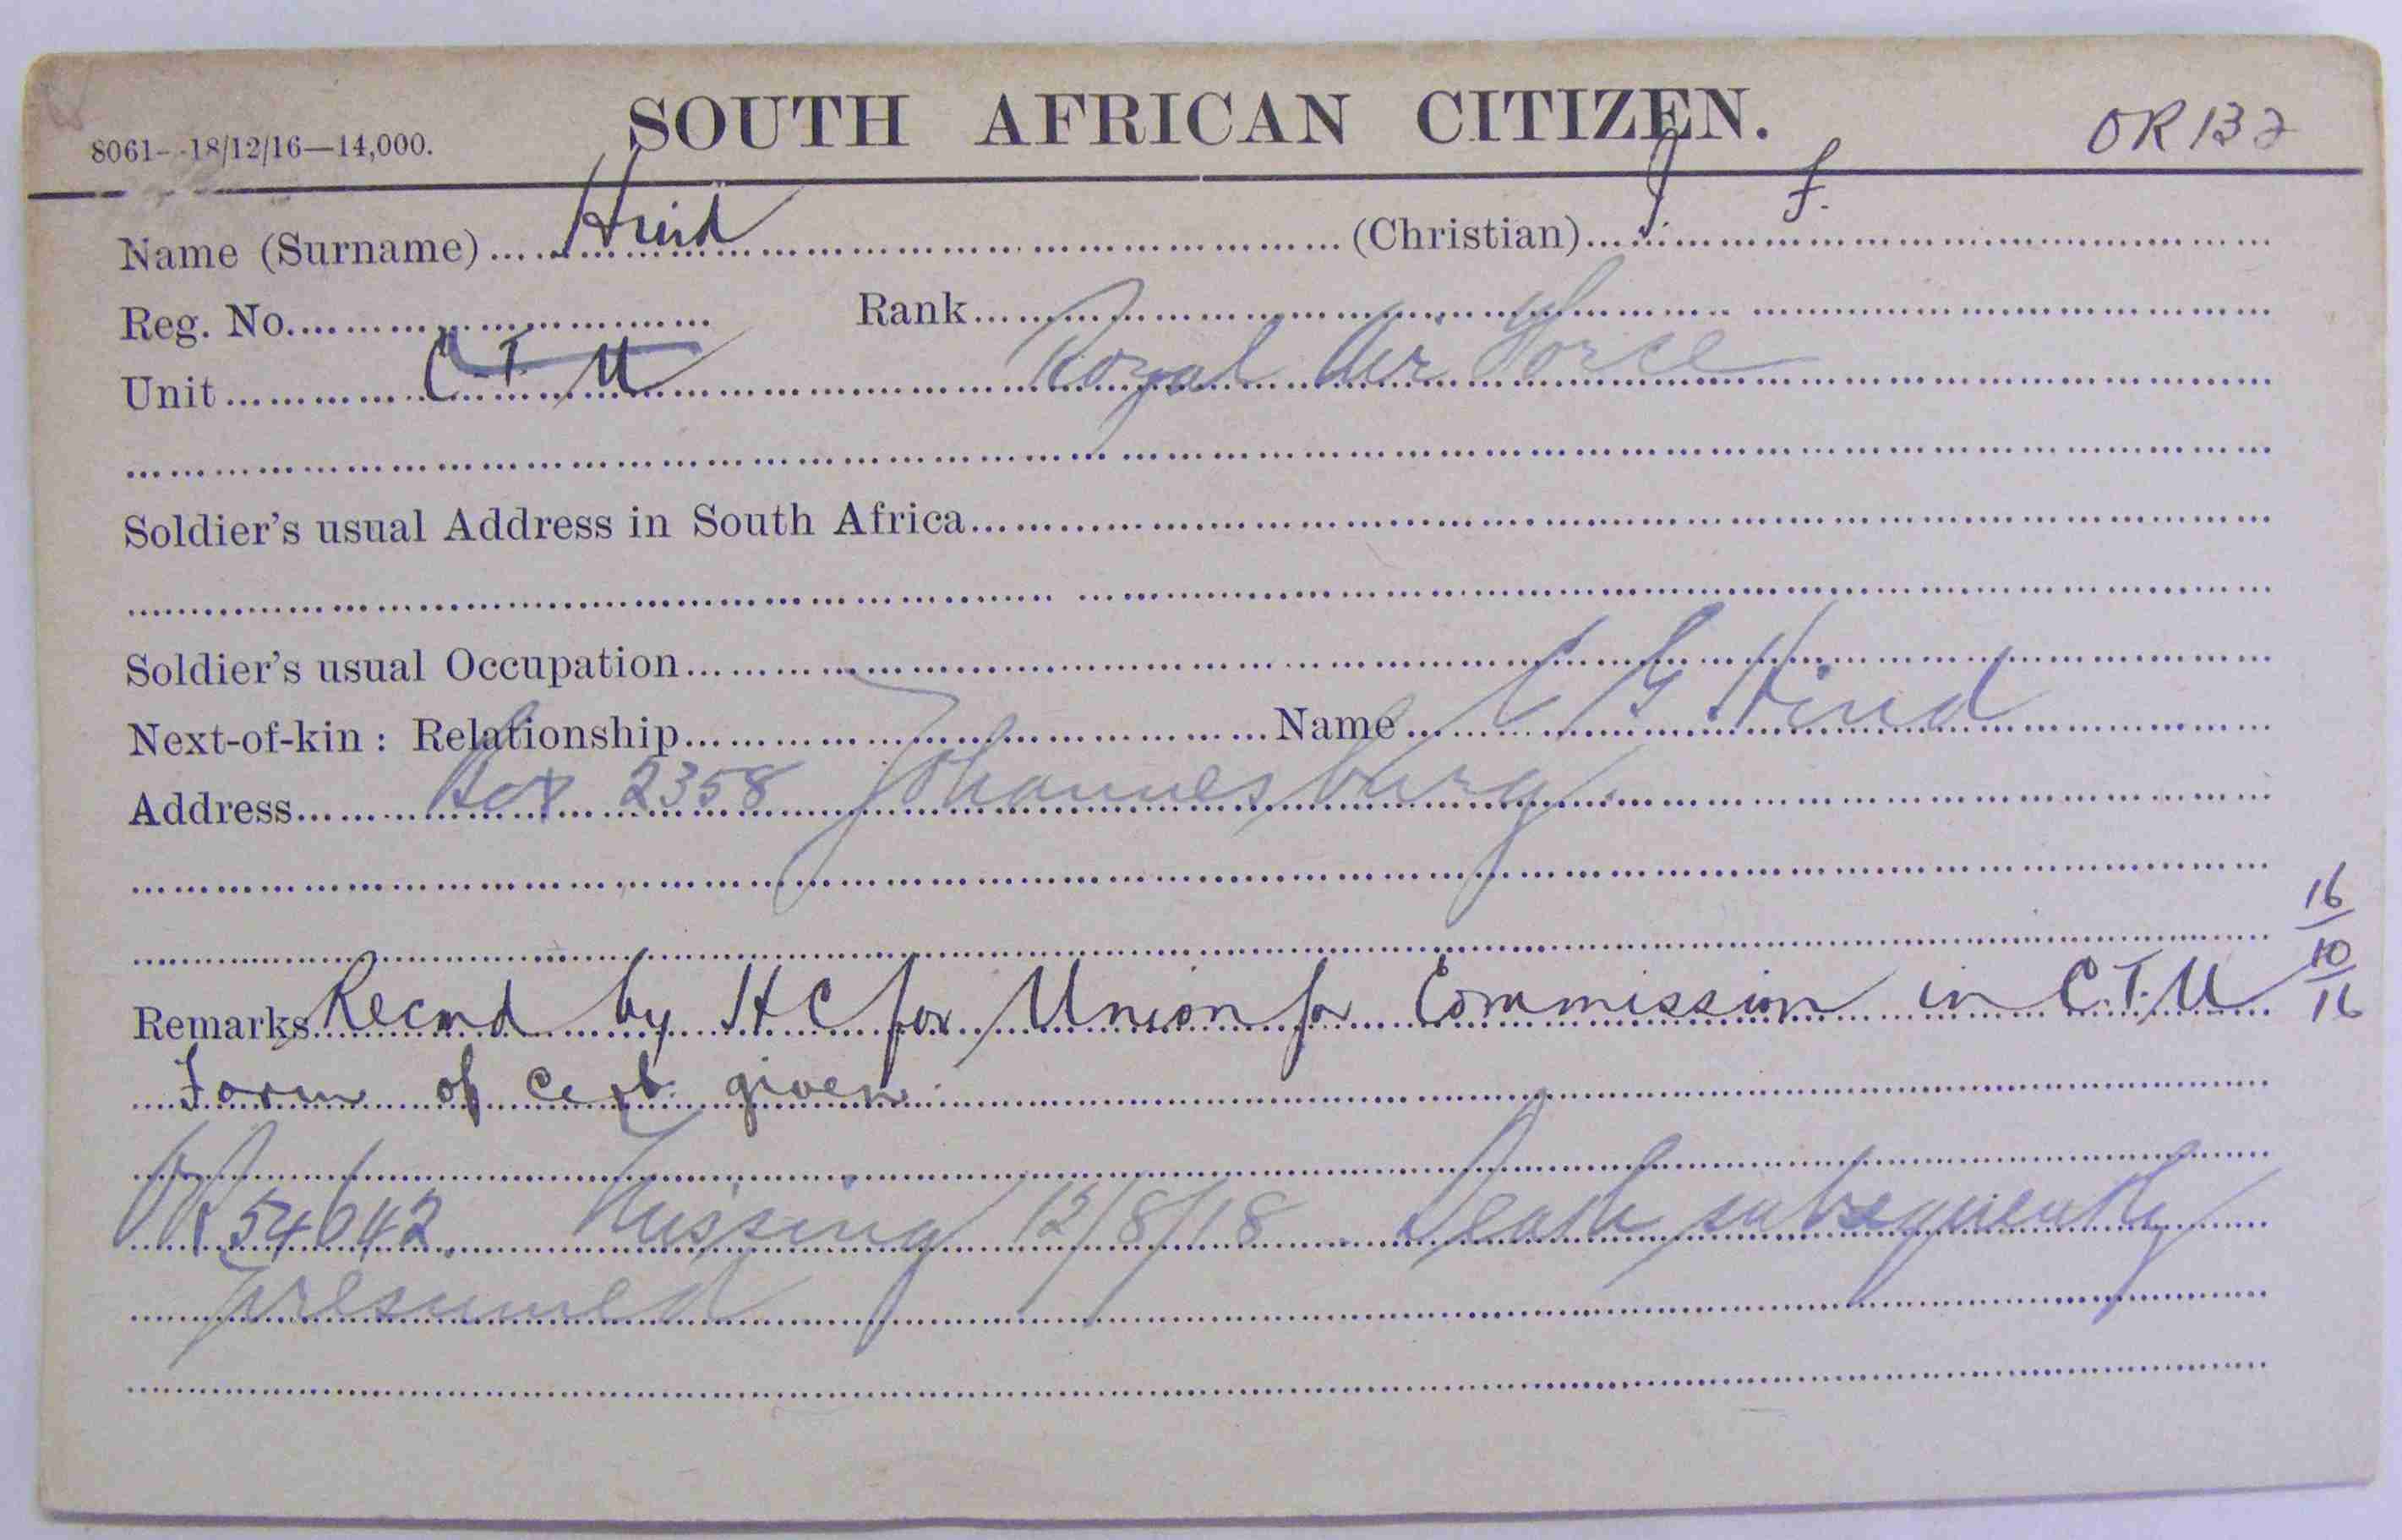 8061--18/12/16—14,000. SOUTH AFRICAN CITIZEN. OR 132
Name (Surname) Hind (Christian) I. F.
Reg. No. Rank
Unit C.T.U Royal Air Force
Soldier's usual Address in South Africa
Soldier's usual Occupation
Next-of-kin : Relationship Name G Hind
Address Box 2358 Johannesburg.
16
10
16
Remarks Recmd by HC for Union for Commission in C.T.U
Form of cert. given.
OR 54642. Missing 12/8/18. Death subsequently
presumed